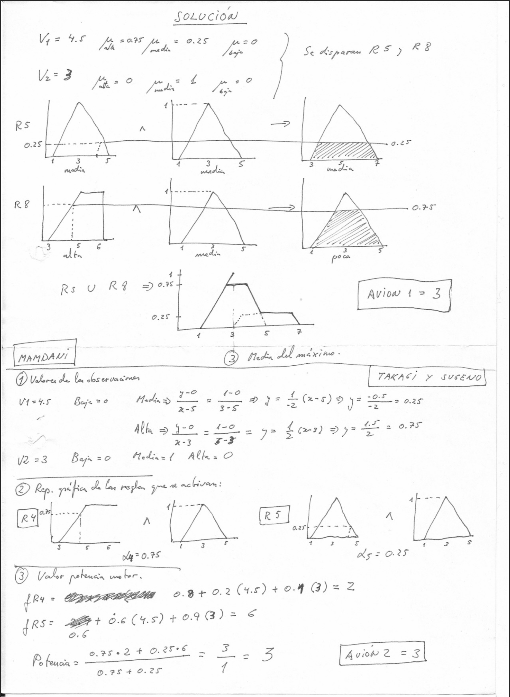 SOLUCIÓN
V1 = 4.5 μalta = 0.75 μmedia = 0.25 μbaja = 0
Se disparan R5 y R8
V2 = 3 μalta = 0 μmedia = 1 μbaja = 0
R5 0.25 1 3 5 media ∧ 1 1 3 5 media → 3 5 7 media 0.25
R8 1 3 5 6 alta ∧ 1 1 3 5 media → 1 3 5 poca 0.75
R5 ∪ R8 ⇒ 1 0.75 0.25 1 3 5 7
AVION 1 = 3
MAMDANI
③ Media del máximo.
① Valores de las observaciones
TAKAGI Y SUGENO
V1 = 4.5 Baja = 0 Media ⇒ y-0/x-5 = 1-0/3-5 ⇒ y = 1/-2 (x-5) ⇒ y = -0.5/-2 = 0.25
Alta ⇒ y-0/x-3 = 1-0/5-3 = y = 1/2 (x-3) ⇒ y = 1.5/2 = 0.75
V2 = 3 Baja = 0 Media = 1 Alta = 0
② Rep. gráfica de las reglas que se activan:
R4 0.75 3 5 ∧ 1 1 3 5
R5 1 0.25 1 3 5 ∧ 1 1 3 5
α4 = 0.75
α5 = 0.25
③ Valor potencia motor.
fR4 = 0.8 + 0.2 (4.5) + 0.1 (3) = 2
fR5 = 0.6 + 0.6 (4.5) + 0.9 (3) = 6
Potencia = 0.75 • 2 + 0.25 • 6 / 0.75 + 0.25 = 3/1 = 3
AVION 2 = 3